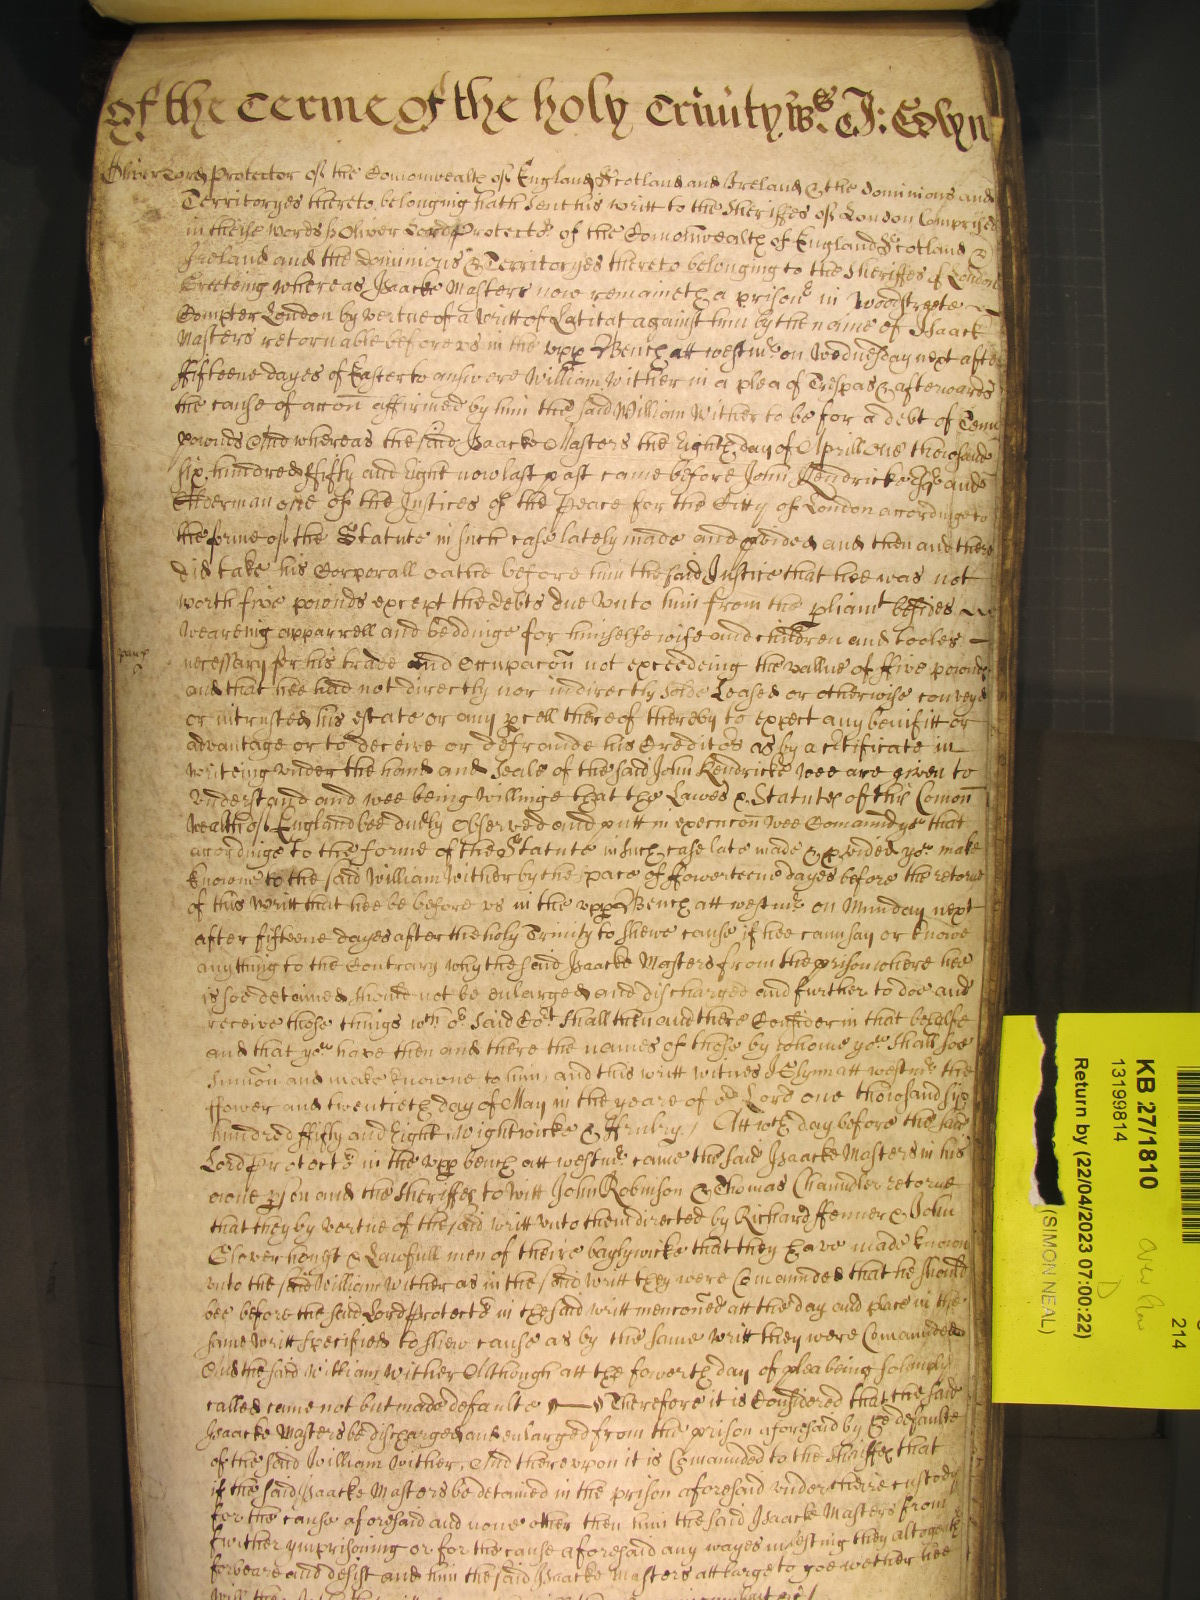 Of the Terme of the holy Trinity Ws. J: Glyn
Oliver Lord Protector of the Comonwealth of England Scotland and Ireland & the dominions and
Territoryes thereto belonging hath sent his writt to the Sheriffes of London Comprised
in theise words ss Oliver Lord Protector of the Comonwealth of England Scotland &
Ireland and the dominions & Territoryes thereto belonging to the Sheriffes of London
Greeteing whereas Isaacke Masters now remaineth a prisonr in Woodstreete
Compter London by vertue of a Writt of Latitat against him by the name of Isaack
Masters retornable before us in the upp Bench att westmr on Wednesday next after
fifteene dayes of Easter to answere William Wither in a plea of Trespas & afterwards
the cause of accon affirmed by him the said William Wither to be for a debt of Tenn
pounds And whereas the said Isaacke Masters the Eighth day of Aprill One thousand
six hundred fifty and Eight now last past came before John Kendricke Esqr and
Alderman one of the Justices of the Peace for the Citty of London accordinge to
the forme of the Statute in such case lately made and pvided and then and there
did take his Corporall oathe before him the said Justice that hee was not
worth five pounds except the debts due unto him from the pliant besides
weareing apparrell and beddinge for himselfe wife and children and tooles
necessary for his trade and Occupacon not exceedeing the vallue of five pounds
and that hee had not directly nor indirectly solde Leased or otherwise conveyd
or intrusted his estate or any pcell thereof thereby to expect any benifitt or
advantage or to deceive or defraude his Creditors as by a certificate in
writeing under the hand and Seale of the said John Kendricke wee are given to
understand and wee being willinge that the Lawes & Statutes of this Comon
wealth of England bee duely observed and putt in execucon wee Comaund you that
accordinge to the forme of the Statute in such case late made & pvided you make
knowne to the said William Wither by the space of fowerteene dayes before the retorne
of this Writt that hee be before us in the upp Bench att westmr on Munday next
after fifteene dayes after the holy Trinity to shewe cause if hee cann say or knowe
any thing to the Contrary why the said Isaacke Masters from the prison where hee
is soe detained should not be enlarged and discharged and further to doe and
receive those things wch or said Cort shall then and there Consider in that behalfe
and that you have then and there the names of those by whome you shall soe
Sumon and make knowne to him and this writt witnes J Glynn att westmr the
ffower and twentieth day of May in the yeare of or Lord one thousand six
hundred fifty and Eight Wightwicke & . Att wch day before the said
Lord Protector in the upp bench att westmr came the said Isaacke Masters in his
owne pson and the Sheriffes to witt John Robinson & Thomas Chandler retorne
that they by vertue of the said writt unto them directed by Richard ffenner & John
Glover honest & Lawfull men of theire baylywicke that they have made known
unto the said William Wither as in the said writt they were Comaunded that he should
bee before the said Lord Protector in the said writt menconed att the day and place in the
same writt specified to shew cause as by the same writt they were Comaunded
And the said William Wither Although att the fowerth day of plea being solempnly
called came not but made defaulte Therefore it is Considered that the said
Isaacke Masters be discharged and enlarged from the prison aforesaid by the defaulte
of the said William Wither. And thereupon it is Comaunded to the Sheriffes that
if the said Isaacke Masters be detained in the prison aforesaid under theire custody
for the cause aforesaid and none other then him the said Isaacke Masters from
further imprisoning or for the cause aforesaid any wayes molesting they altogether
forbeare and desist and him the said Isaacke Masters att large to goe whether hee
KB 27/1810
13199814
Return by (22/04/2023 07:00:22)
(SIMON NEAL)
214